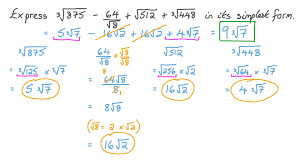 Express ³√875 − 64/√8 + √512 + ³√448 in its simplest form.
= 5³√7 − 16√2 + 16√2 + 4³√7 = 9³√7
³√875
= ³√125 × ³√7
= 5³√7
64/√8 × √8/√8
= 64√8/8
= 8√8
(√8 = 2 × √2)
= 16√2
√512
= √256 × √2
= 16√2
³√448
= ³√64 × ³√7
= 4³√7